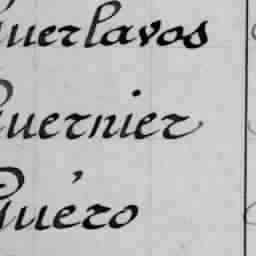 Guerlavos
Guernier
Guéro